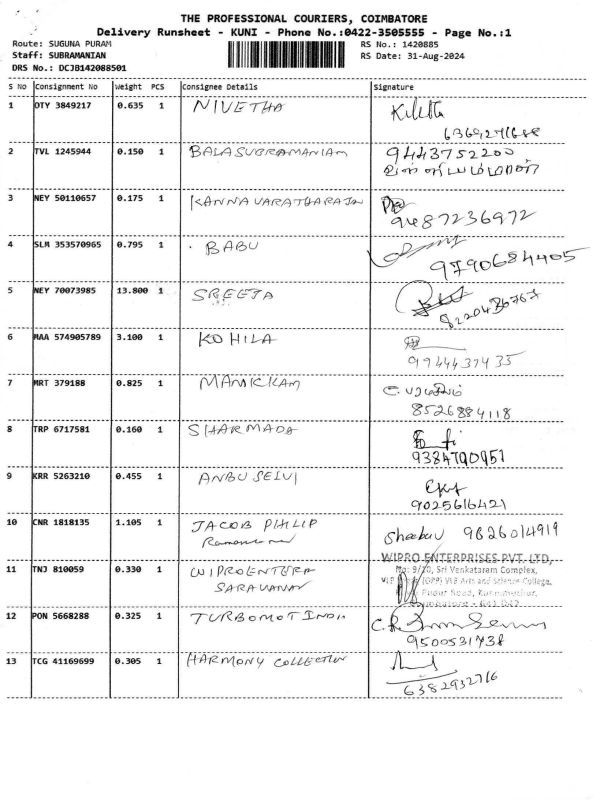 THE PROFESSIONAL COURIERS, COIMBATORE
Delivery Runsheet - KUNI - Phone No.:0422-3505555 - Page No.:1
Route: SUGUNA PURAM RS No.: 1420885
Staff: SUBRAMANIAN RS Date: 31-Aug-2024
DRS No.: DCJB142088501
S No Consignment No Weight PCS Consignee Details Signature
1 OTY 3849217 0.635 1 NIVETHA
2 TVL 1245944 0.150 1 BALASUBRAMANIAM 9443752200
3 NEY 50110657 0.175 1 KANNAVARATHARAJN
9487236972
4 SLM 353570965 0.795 1 BABU
9790684405
5 NEY 70073985 13.800 1 SREEJA
6 MAA 574905789 3.100 1 KOHILA
9944437435
7 MRT 379188 0.825 1 MANIKKAM
8526884118
8 TRP 6717581 0.160 1 SHARMADA
9384790951
9 KRR 5263210 0.455 1 ANBU SELVI
9025616421
10 CNR 1818135 1.105 1 JACOB PHILIP
9826014919
WIPRO ENTERPRISES PVT. LTD,
No: 9/10, Sri Venkataram Complex,
11 TNJ 810059 0.330 1 WIPROENTERA
SARAVANAN
(OPP) VLB Arts and Science College,
12 PON 5668288 0.325 1 TURBOMOT INDIA
9500531738
13 TCG 41169699 0.305 1 HARMONY COLLECTION
6382932716